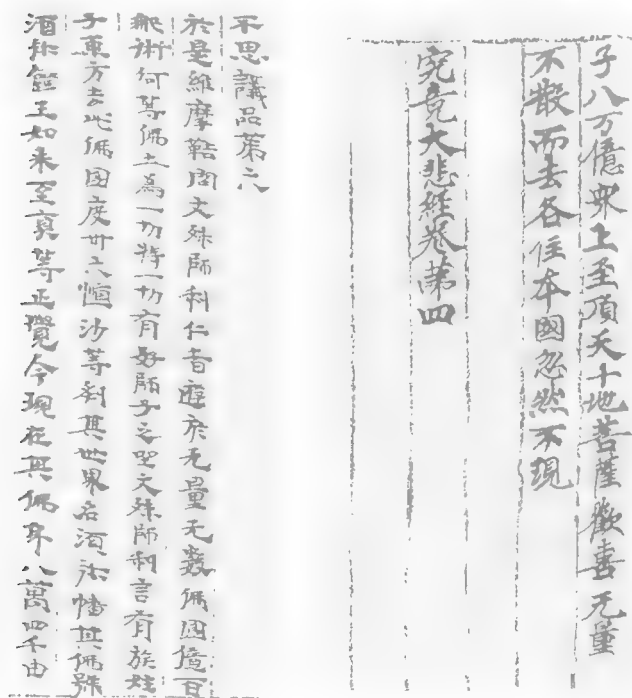 子八万億衆上至頂天十地菩薩歡喜无量
不散而去各住本國忽然不現
究竟大悲經卷第四
不思議品第六
於是維摩詰問文殊師利仁者遊於无量无數佛國億百
那術何等佛土爲一切持一切有好師子之坐文殊師利言有族姓
子東方去此佛國度卅六恒沙等刹其世界名須弥幡其佛號
須弥燈王如来至真等正覺今現在其佛身八萬四千由